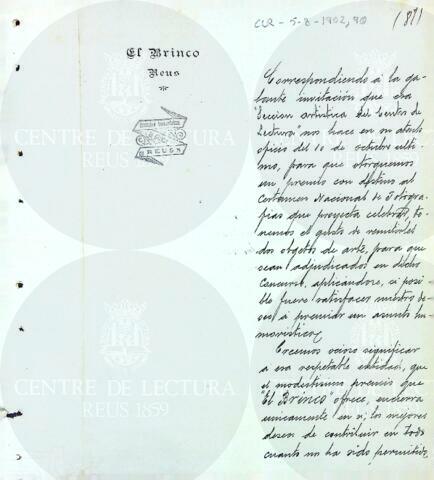 CLR - 5-8-1902, 90
(87)
El Brinco
Reus
CENTRE DE LECTURA
REUS 1859
CENTRE DE LECTURA
REUS 1859
REUS
Correspondiendo á la ga-
lante invitación que esa
"Sección artística del Centro de
Lectura" nos hace en su atento
oficio del 10 de octubre últi-
mo, para que otorguemos
un premio con destino al
Certamen Nacional de Fotogra-
fías que proyecta celebrar, te-
nemos el gusto de remitirles
dos objetos de arte, para que
sean adjudicados en dicho
Concurso, aplicándose, si posi-
ble fuere satisfacer nuestro de-
seo, á premiar un asunto hu-
morístico.
Creemos ocioso significar
á esa respetable entidad, que
el modestísimo premio que
"El Brinco" ofrece, encierra
unicamente en si, los mejores
deseos de contribuir en todo
cuanto nos ha sido permitido,